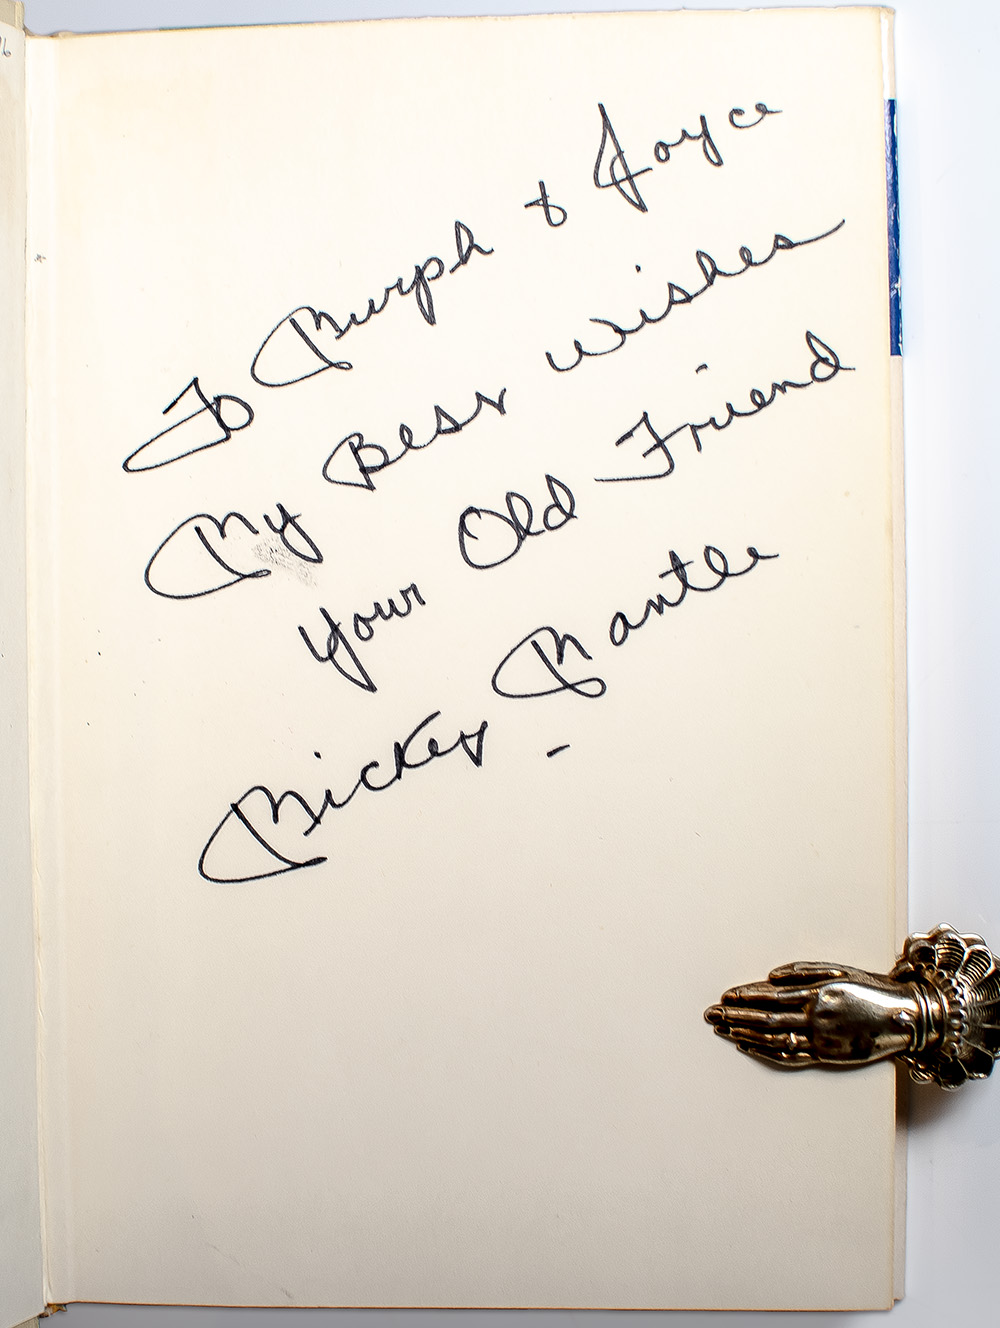 To Murph & Joyce
My Best Wishes
Your Old Friend
Mickey Mantle
-